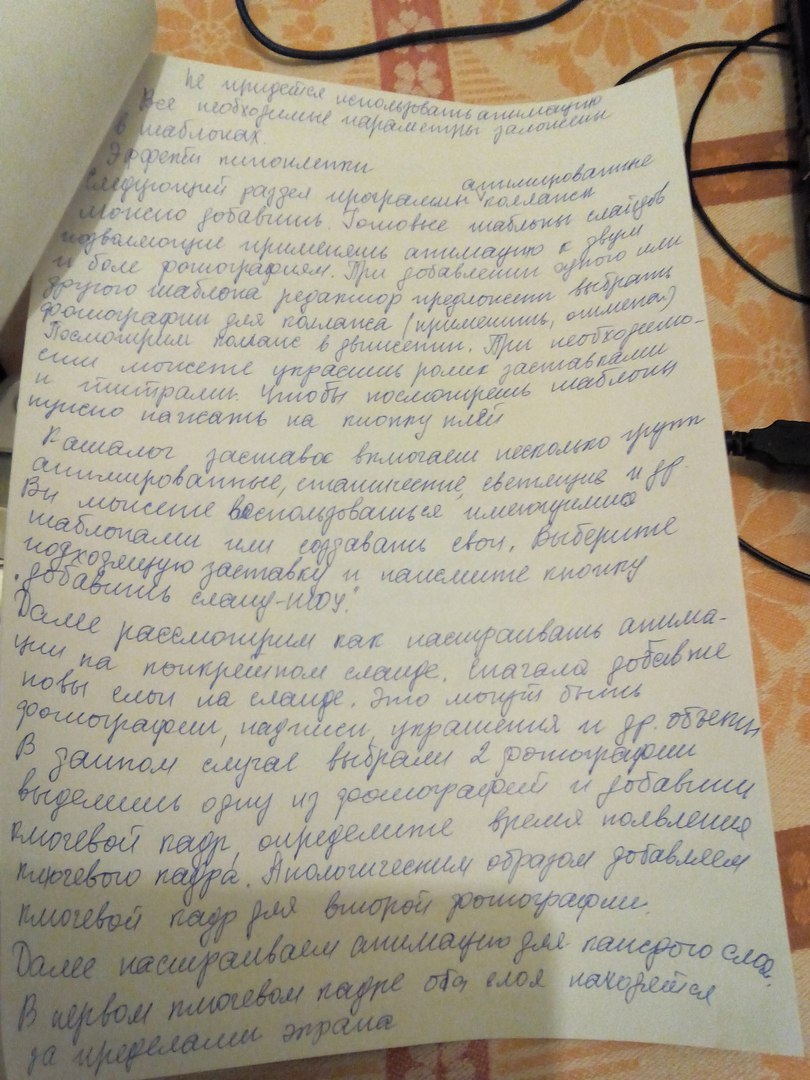 не придётся использовать анимацию
Все необходимые параметры заложены
в шаблонах.
Эффекты киноплёнки
анимированные
Следующий раздел программы коллажи
можно добавить. Готовые шаблоны слайдов
позволяющие применять анимацию к двум
и боле фотографиям. При добавлении одного или
другого шаблона редактор предложит выбрать
фотографии для коллажа (применить, отмена)
Посмотрим коллаж в движении. При необходимо-
сти можете украсить ролик заставками
и титрами. Чтобы посмотреть шаблоны
нужно нажать на кнопку плей
Каталог заставок включает несколько групп
анимированные, статические, светлые и др.
Вы можете воспользоваться имеющимися
шаблонами или создавать свои. Выберите
подходящую заставку и нажмите кнопку
"добавить слайд-шоу".
Далее рассмотрим как настраивать анима-
ции на конкретном слайде. Сначала добавте
новы слои на слайде. Это могут быть
фотографии, надписи, украшения и др. объекты
В данном случае выбрали 2 фотографии
выделить одну из фотографий и добавить
ключевой кадр, определите время появления
ключевого кадра. Анологическим образом добавляем
ключевой кадр для второй фотографии.
Далее настраиваем анимацию для каждого слоя.
В первом ключевом кадре оба слоя находятся
за пределами экрана